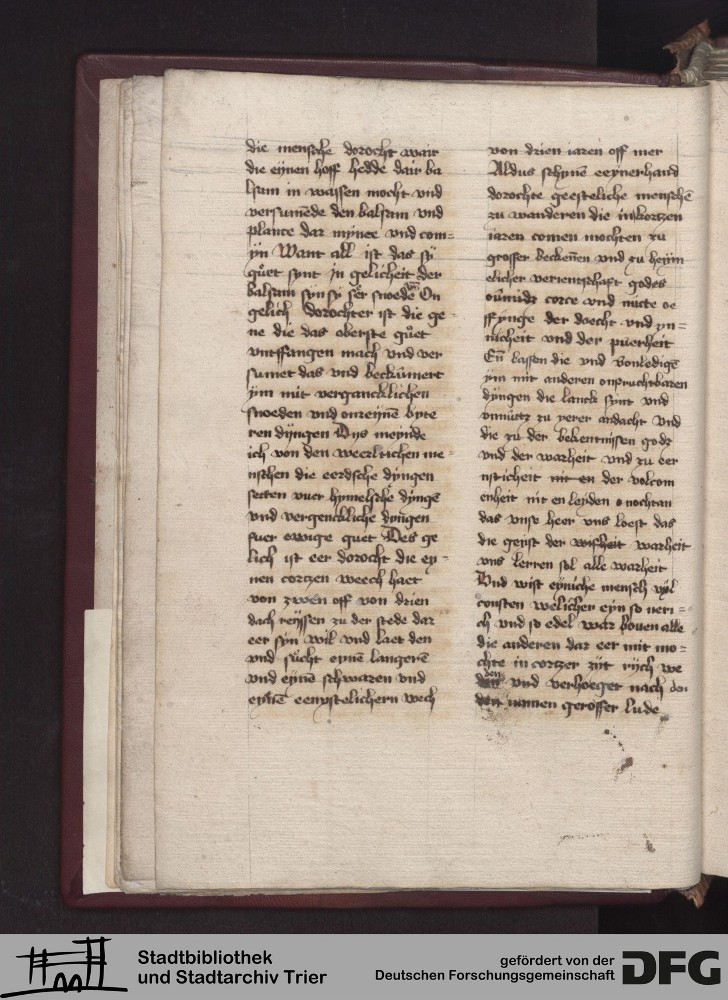 die mensche dorocht wair
die eijnen hoff hedde dair ba
lsam in wassen mocht vnd
versumēde den balsam vnd
plante dar mynee vnd com=
yn Want all ist das sij
gůet synt jn gelicheit der
balsam syn sy ser snoede On
gelich dorochter ist die ge=
ne die das oberste gůet
vntffangen mach vnd ver
sumet das vnd beckůmert
ym mit vergancklichen
snoeden vnd onreynē byte
ren dyngen Dys meynde
ich von den weerltlichen me=
nschen die eerdsche dyngen
setten vuer hymelsche dyngē
vnd vergenckliche dyngen
fuer ewige guet Des ge
lich ist eer dorocht die ey=
nen cortzen weech haet
von zwen off von drien
dach reyssen zu der stede dar
eer syn wil vnd laet den
vnd sůcht eynē langerē
vnd eynē schwaren vnd
eynē eenxstelichern wech
von drien iaren off mer
Aldus schynē eeynerhand
dorochte geesteliche menschē
zu wanderen die in kortzen
iaren comen mochten zu
grosser beckēnen vnd zu heym
elicher verientschaft godes
corce vnd nutte oe
ffynge der doecht vnd yn=
nicheit vnd der puerheit
Eñ lassen die vnd vonledigē
ym mit anderen onfruchtbaren
dyngen die lanck synt vnd
vnnůtz zu verer andacht vnd
die zu der bekentnissen gods
vnd der warheit vnd zu eer
nsticheit nit en der volcom
enheit nit en leyden nochtan
das vnse heer vns loest das
die geist der wisheit warheit
vns lerren sol alle warheit
Vnd wist eyniche mensch vyl
consten welicher eyn so neri=
ch vnd so edel war bouen alle
die anderen dar eer mit mo=
chte in cortzer zijt rijch we
den vnd verhoeget nach den
namen gerosser lude
Stadtbibliothek
und Stadtarchiv Trier
gefördert von der
Deutschen Forschungsgemeinschaft
DFG